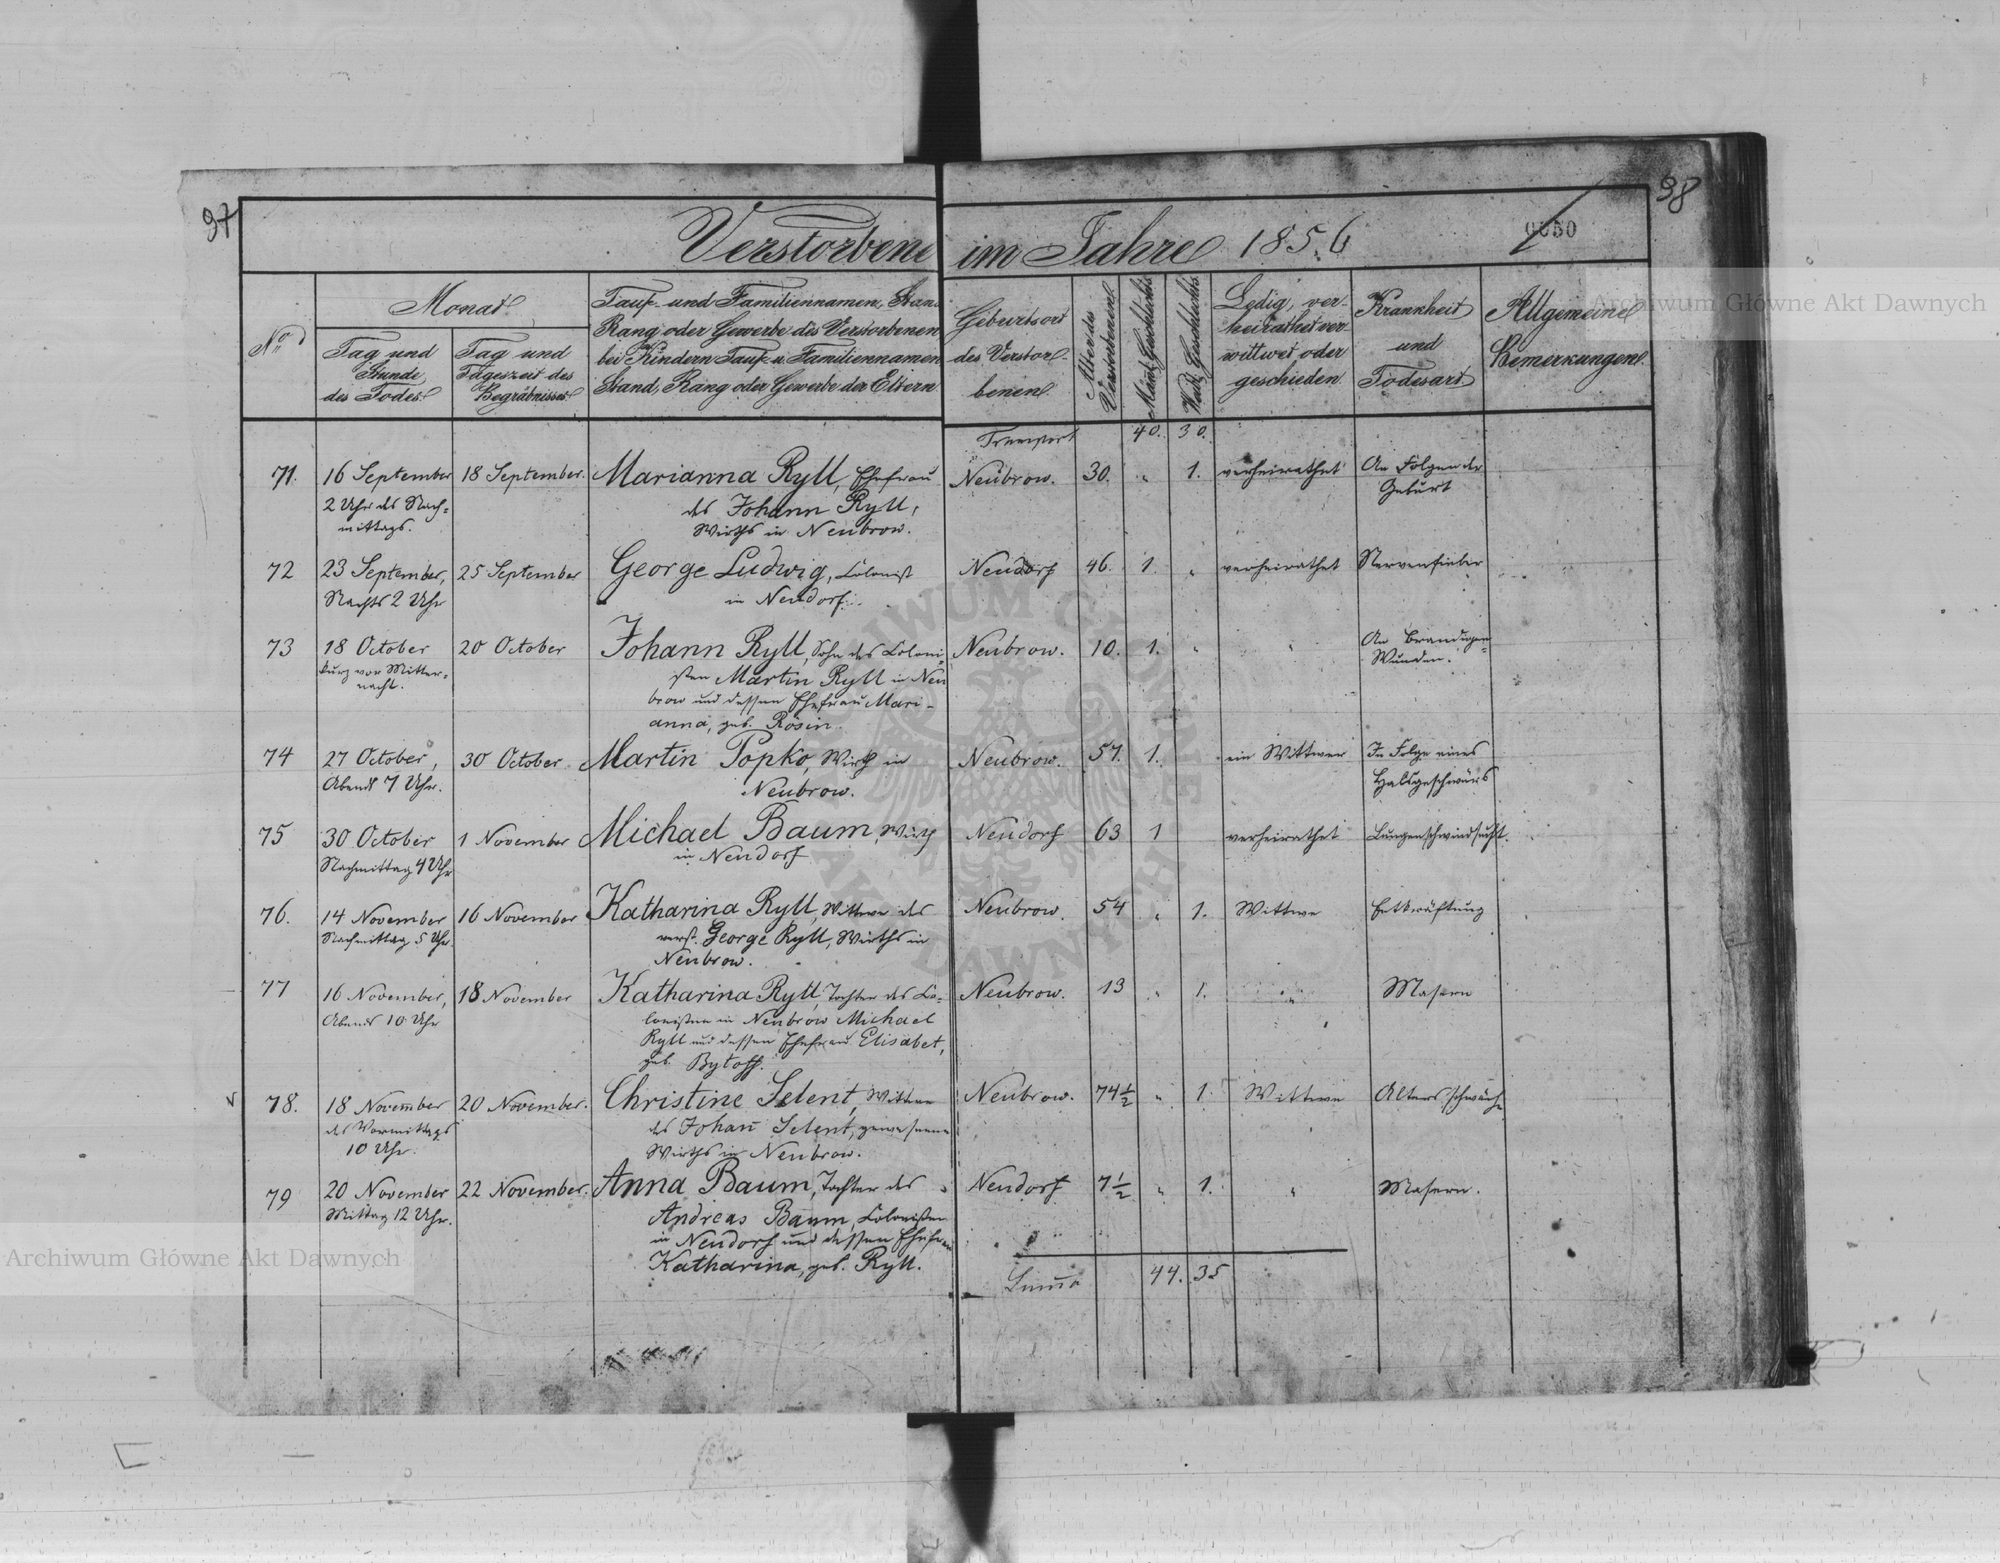 97
98
Verstorbene im Jahre 1856
0050
No
Monat
Tag und Stunde des Todes
Tag und Tageszeit des Begräbnisses
Tauf- und Familiennamen, Stand
Rang oder Gewerbe des Verstorbenen
bei Kindern Tauf- u. Familiennamen
Stand, Rang oder Gewerbe der Eltern
Geburtsort
des Verstor-
benen
Alter des Verstorbenen
Männl. Geschlechts
Weibl. Geschlechts
Ledig, ver-
heirathet ver-
wittwet oder
geschieden
Krankheit
und
Todesart
Allgemeine
Bemerkungen
Archiwum Główne Akt Dawnych
Transport 40. 30.
71. 16 September 18 September. Marianna Ryll, Ehefrau Neubrow. 30. " 1. verheirathet An Folgen der
2 Uhr des Nach= des Johann Ryll, Geburt
mittags. Wirths in Neubrow.
72 23 September, 25 September George Ludwig, Colonist Neudorf 46. 1. " verheirathet Nervenfieber
Nachts 2 Uhr in Neudorf.
73 18 October 20 October Johann Ryll, Sohn des Coloni= Neubrow. 10. 1. " " An Brandigen
kurz vor Mitter= sten Martin Ryll in Neu Wunden.
nacht. brow und dessen Ehefrau Mari-
anna, geb. Rosin.
74 27 October, 30 October Martin Popko, Wirth in Neubrow. 57. 1. ein Wittwer In Folge eines
Abends 7 Uhr. Neubrow. Halsgeschwürs
75 30 October 1 November Michael Baum, Wirth Neudorf 63 1 verheirathet Lungenschwindsucht.
Nachmittag 4 Uhr in Neudorf
76. 14 November 16 November Katharina Ryll, Wittwe des Neubrow. 54 " 1. Wittwe Entkräftung
Nachmittag 5 Uhr. verst. George Ryll, Wirths in
Neubrow.
77 16 November, 18 November Katharina Ryll, Tochter des Co= Neubrow. 13 " 1. " Masern
Abends 10 Uhr lonisten in Neubrow Michael
Ryll und dessen Ehefrau Elisabet,
geb. Bytoff.
78. 18 November 20 November. Christine Selent, Wittwe Neubrow. 74½ " 1. Wittwe Altersschwäche
des Vormittags des Johann Selent, gewesenen
10 Uhr. Wirths in Neubrow.
79 20 November 22 November. Anna Baum, Tochter des Neudorf 7½ " 1. " Masern.
Mittag 12 Uhr. Andreas Baum, Colonisten
in Neudorf und dessen Ehefrau
Katharina, geb. Ryll.
Summa 44. 35
Archiwum Główne Akt Dawnych
ARCHIWUM GŁÓWNE
AKT DAWNYCH